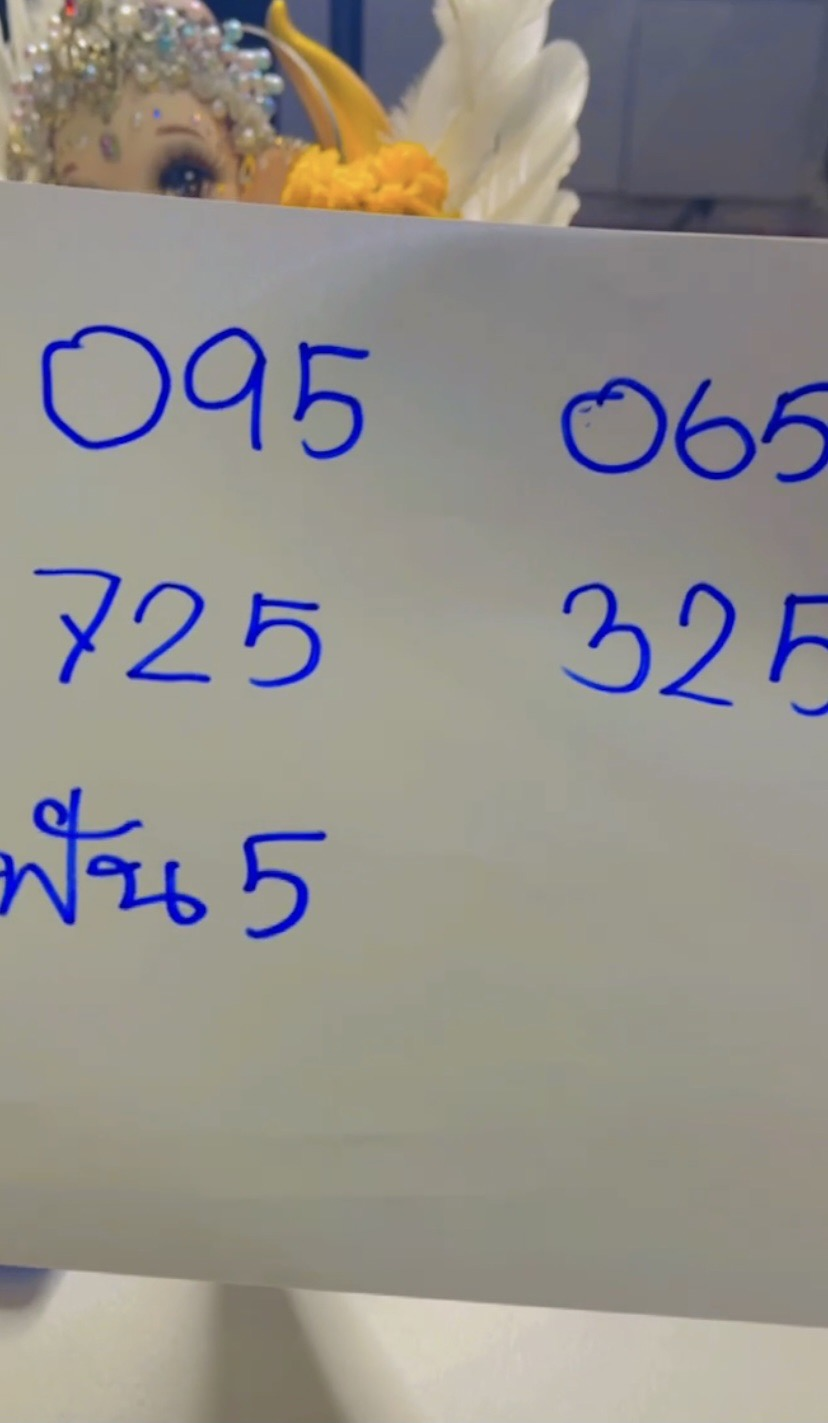 095 065
725 325
ฟัน 5